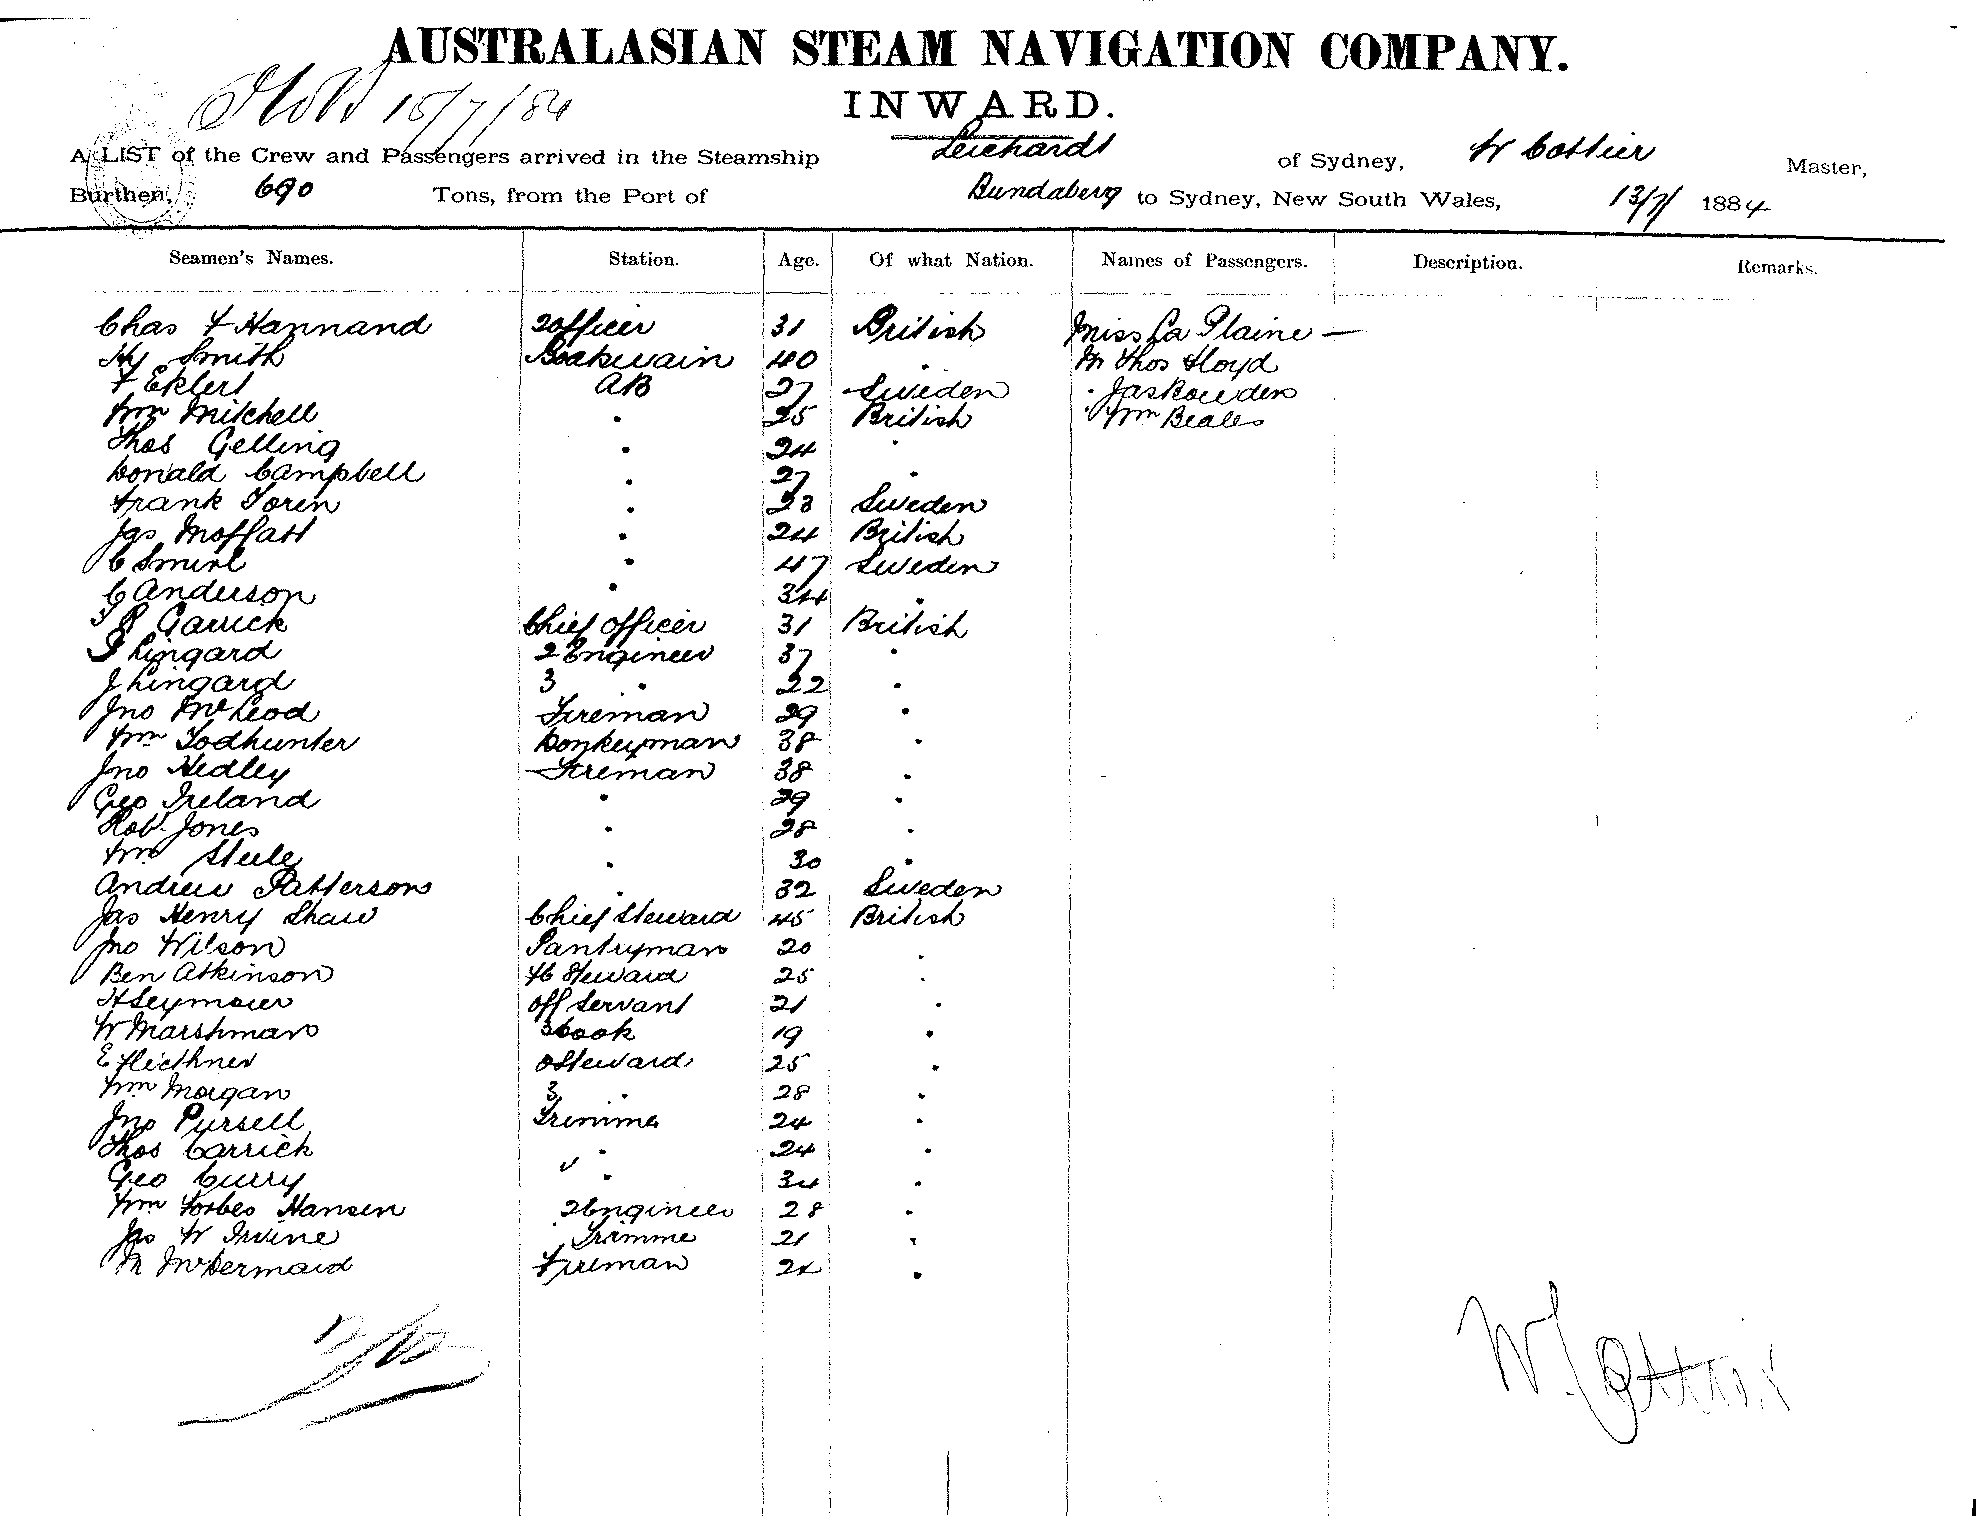 AUSTRALASIAN STEAM NAVIGATION COMPANY.
INWARD.
15/7/84
A LIST of the Crew and Passengers arrived in the Steamship Leichardt of Sydney, W Cottier Master,
Burthen, 690 Tons, from the Port of Bundaberg to Sydney, New South Wales, 13/7/ 1884
Seamen's Names. Station. Age. Of what Nation. Names of Passengers. Description. Remarks.
Chas F Hannand 2 Officer 31 British Miss La Plaine —
Hy Smith Boatswain 40 " Mr Thos Lloyd
F Eklert AB 27 Sweden " Jas Bowden
Wm Mitchell " 25 British " Wm Beales
Thos Gelling " 24 "
Donald Campbell " 27 "
Frank Toren " 23 Sweden
Jas Moffatt " 24 British
C Smirl " 47 Sweden
C Anderson " 34 "
J R Garrick Chief Officer 31 British
J Lingard 2 Engineer 37 "
J Lingard 3 " 22 "
Jno McLeod Fireman 29 "
Wm Todhunter Donkeyman 38 "
Jno Hedley Fireman 38 "
Geo Ireland " 29 "
Robt Jones " 28 "
Wm Steele " 30 "
Andrew Patterson " 32 Sweden
Jas Henry Shaw Chief Steward 45 British
Jno Wilson Pantryman 20 "
Ben Atkinson Steward 25 "
H Seymour Off Servant 21 "
W Marshman 3 Cook 19 "
E Fliethner Steward 25 "
Wm Morgan 3 " 28 "
Jno Pursell Trimme 24 "
Thos Carrick " 24 "
Geo Curry " 34 "
Wm Forbes Hansen 2 Engineer 28 "
Jas W Irvine Trimme 21 "
M McDermaid Fireman 24 "
W Cottier